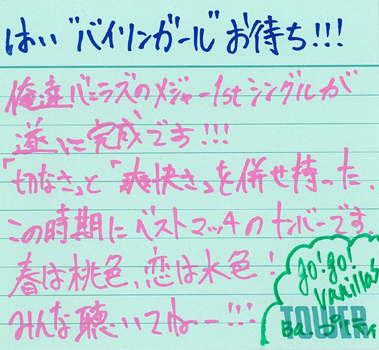 はい“バイリンガール”お待ち!!!
俺達バニラズのメジャー1stシングルが
遂に完成です!!!
「切なさ」と「爽快さ」を併せ持った、
この時期にベストマッチのナンバーです。
春は桃色、恋は水色!
みんな聴いてねー!!!
go!go!
vanillas
Ba.プリティ
TOWER